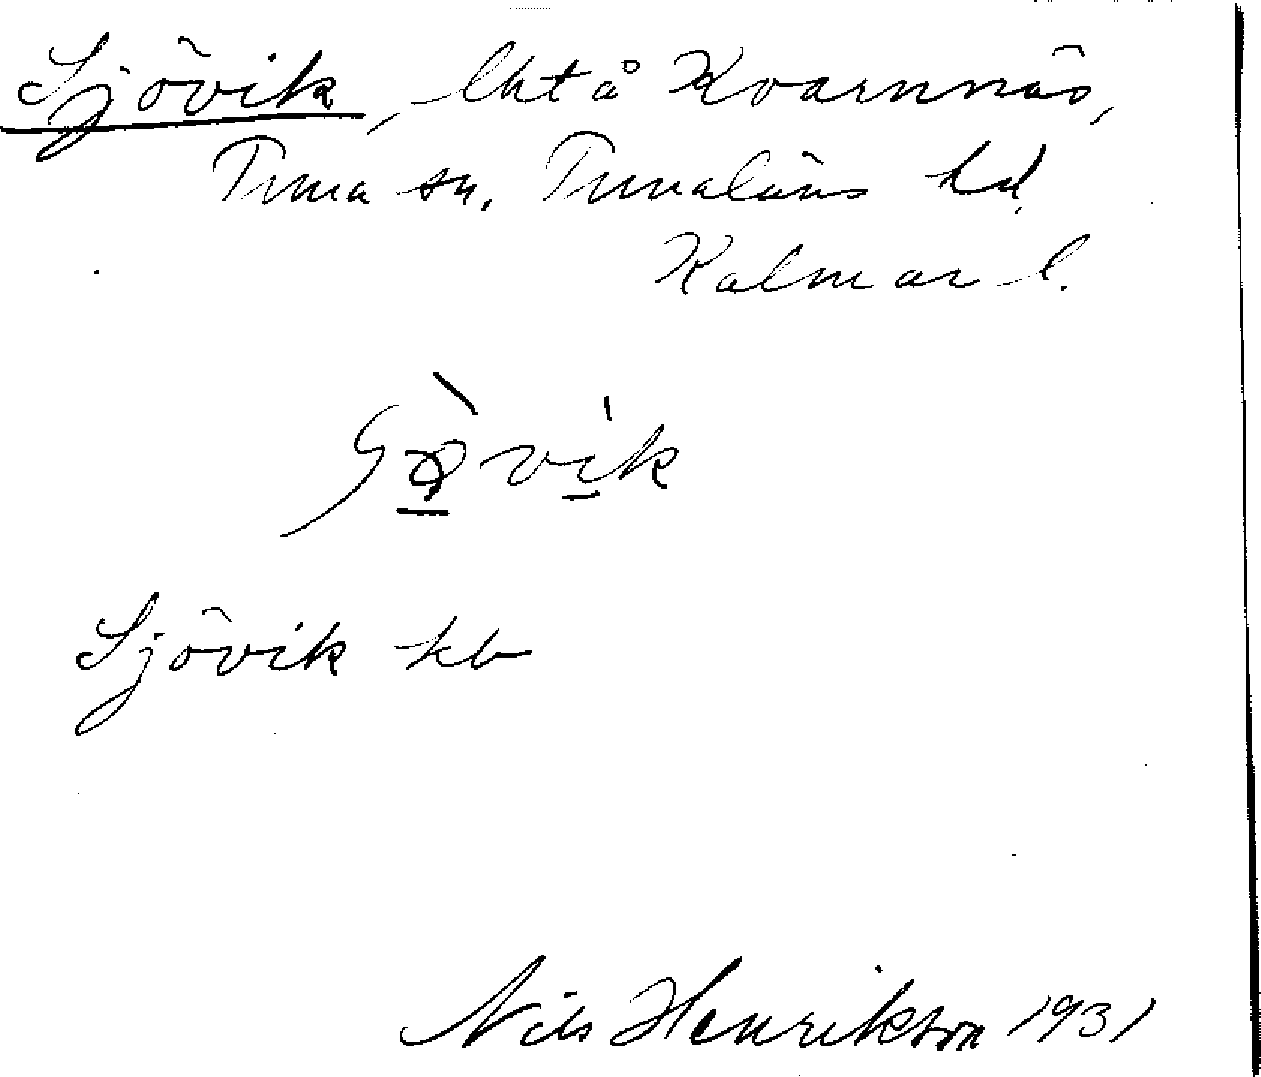 Sjövik, lht å Kvarnnäs,
Tuna sn, Tunaläns hd
Kalmar l.
Sjövik kb
Nils Henrikson 1931